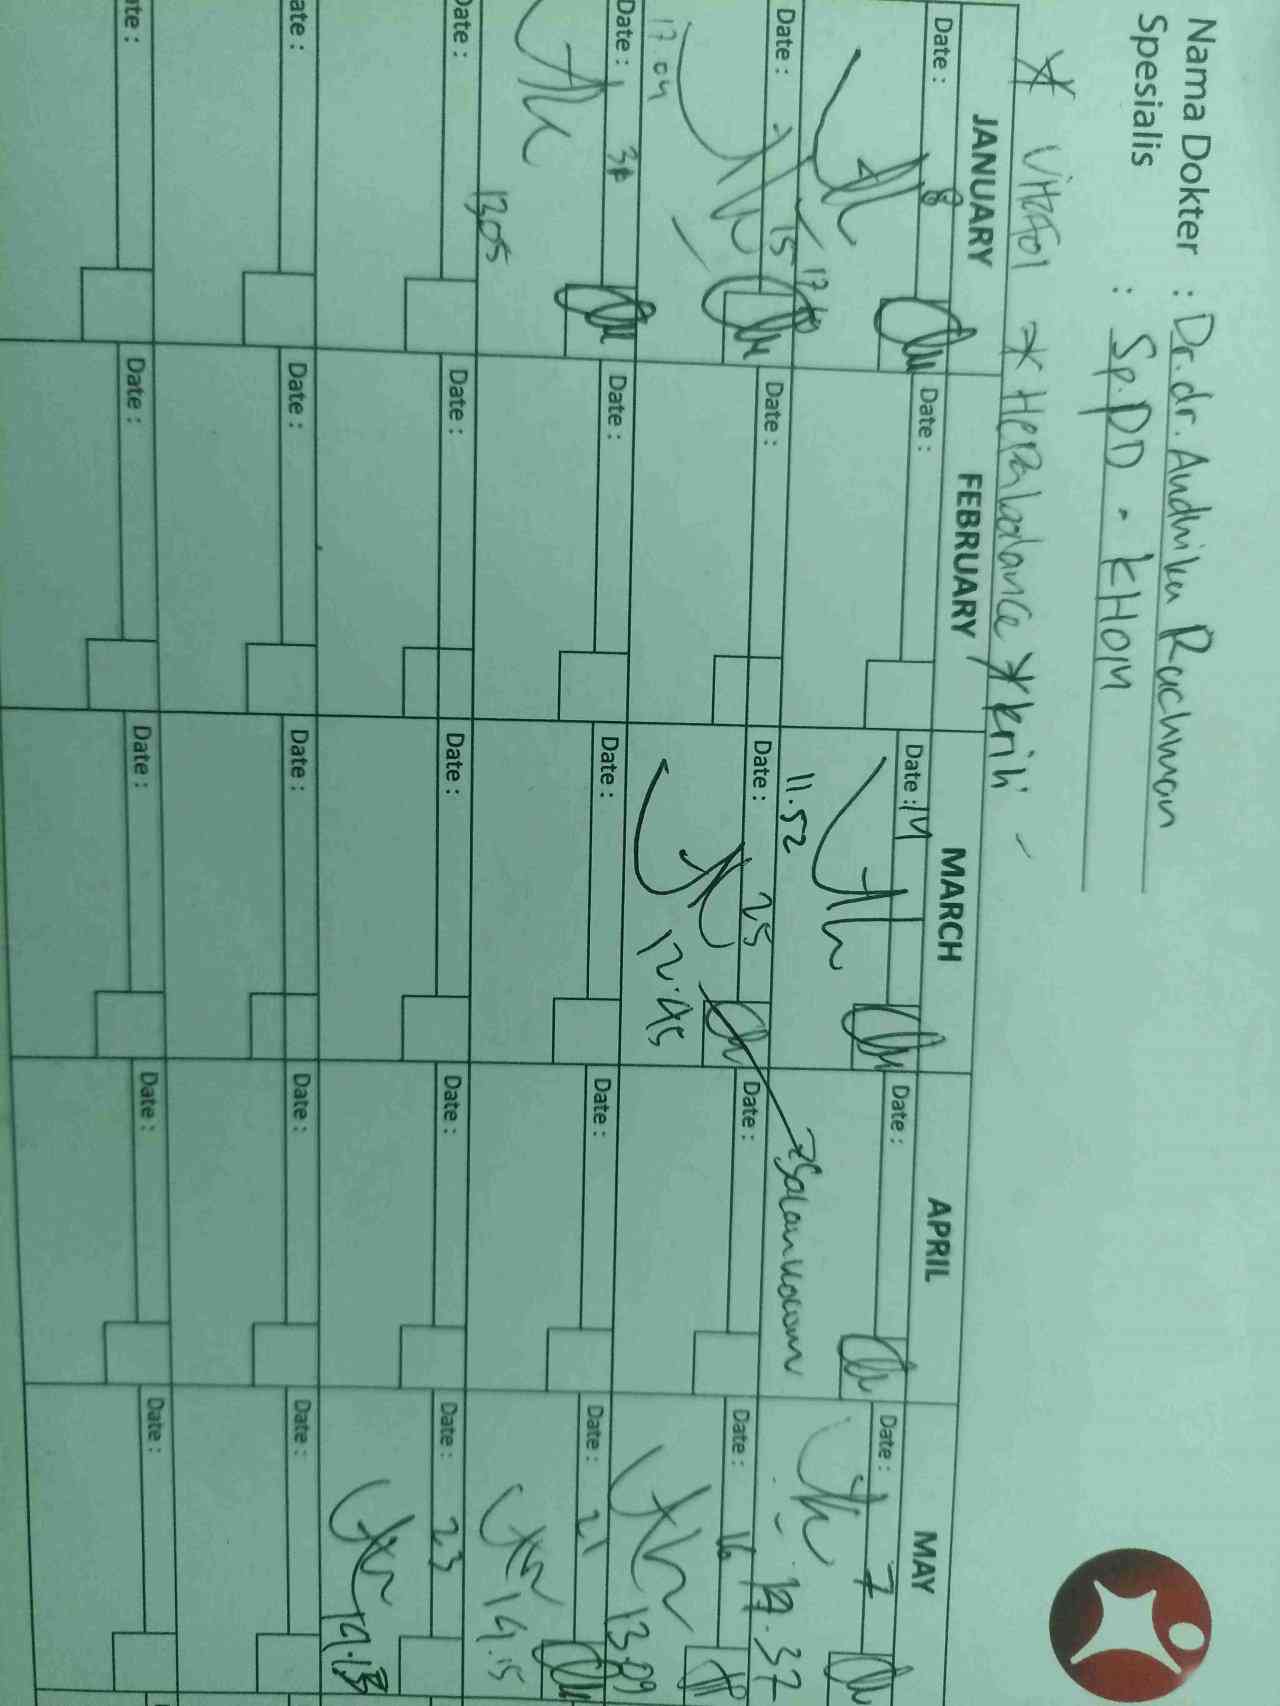 Nama Dokter : Dr. dr. Andhika Rachman
Spesialis : Sp.PD - KHOM
* Vitafol * Hepabalance * krili
JANUARY FEBRUARY MARCH APRIL MAY
Date : 8 Date : Date : 14 Date : Date : 7
11.52
Date : 15 Date : Date : 25 Date : Date : 16
17.04 12.45 13.09
Date : Date : Date : Date : Date : 21
13.05 14.15
Date : Date : Date : Date : Date : 23
ate : Date : Date : Date : Date :
ate : Date : Date : Date : Date :